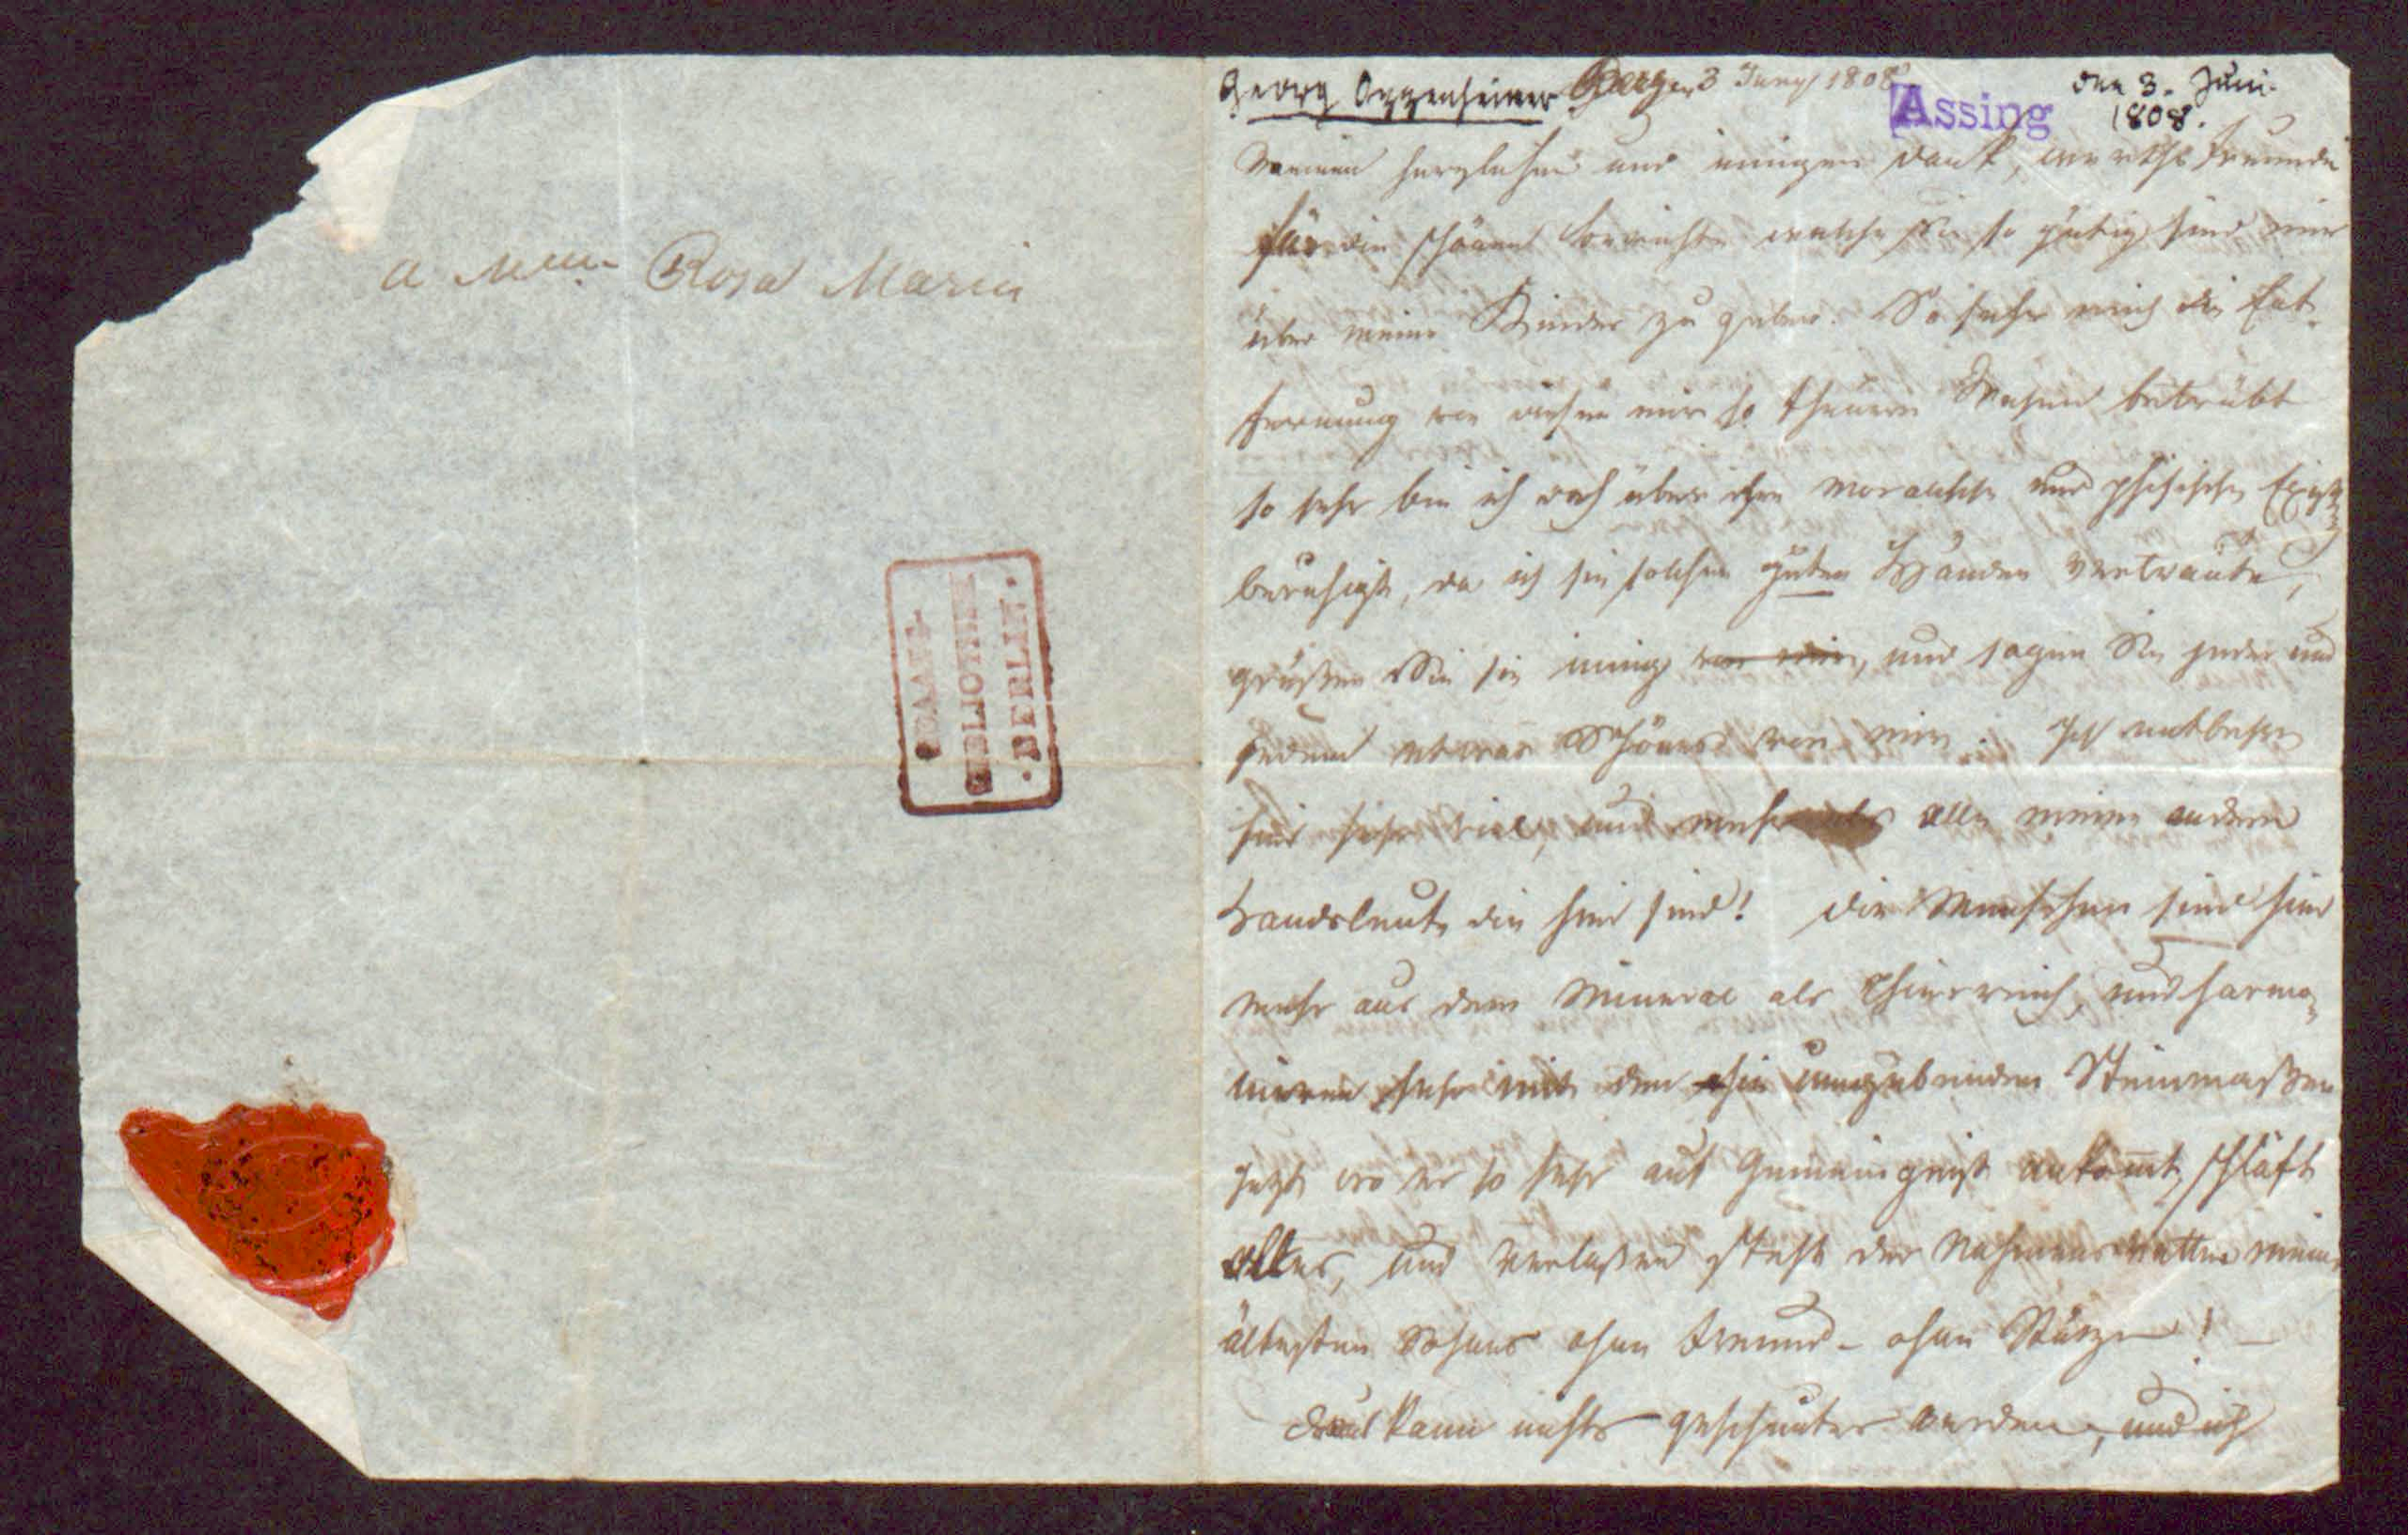 a Mlle Rosa Maria
STAATS-
BIBLIOTHEK
·BERLIN·
Georg Oppenheimer 3 Juny 1808
Assing
den 3. Juni
1808.
Meinen herzlichen und innigen Dank, werthe Freundin
für die schönen Berichte welche Sie so gütig sind mir
über meine Kinder zu geben. So sehr mich die Ent-
fernung von diesen mir so theuren Wesen betrübt
so sehr bin ich doch über ihre moralische und phisische Existenz
beruhigt, da ich sie solchen guten Händen vertraute,
grüßen Sie sie innig von mir, und sagen Sie jeder und
jedem etwas Schönes von mir. Ich entbehre
hier sehr viel, und mehr als alle meine andern
Landsleute die hier sind! Die Menschen sind hier
mehr aus dem Mineral als Thierreich, und harmo-
niren sehr mit den sie umgebenden Steinmaßen
Jetzt wo es so sehr auf Gemeingeist ankomt, schläft
alles, und verlaßen steht der meines
ältesten Sohnes ohne Freund - ohne Stütze! —
kann nichts werden, und ich